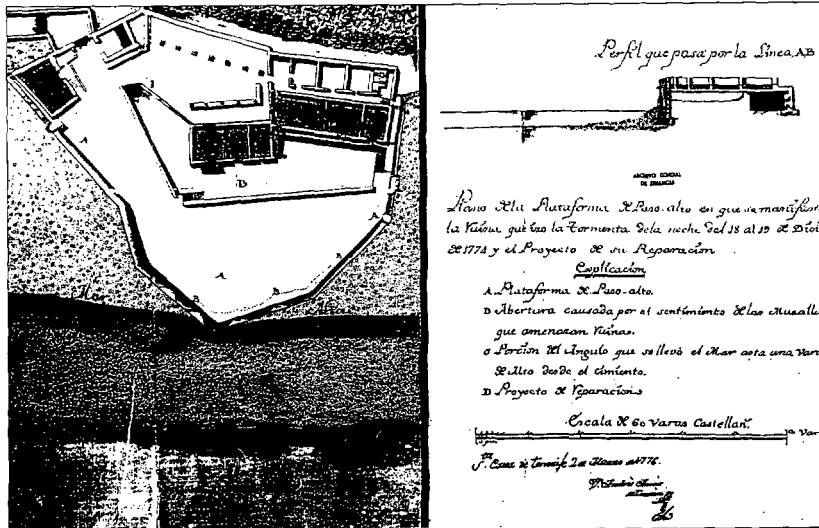 Perfil que pasa por la Linea, AB
ARCHIVO GENERAL
DE SIMANCAS
Plano de la Plataforma de Paso-alto en que se manifiesta
la Ruina que izo la Tormenta de la noche del 18 al 19 de Dici
de 1774 y el Proyecto de su Reparacion
Explicacion
A Plataforma de Paso-alto.
B Abertura causada por el sentimiento de las Muralla
que amenazan Ruinas.
C Porcion del Angulo que se llevò el Mar asta una Vara
de Alto desde el cimiento.
D Proyecto de Reparacion
Escala de 60 Varas Castellan.
Var
Sta. Cruz de Tenerife 2 de Marzo de 1776.
A
B
D
A
A
B
B
B